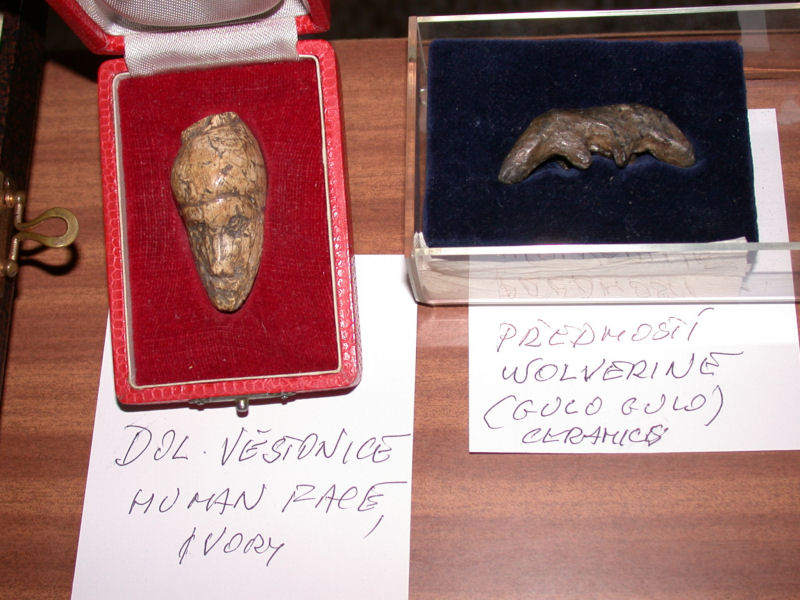 DOL. VĚSTONICE
HUMAN FACE,
IVORY
PŘEDMOSTÍ
WOLVERINE
(GULO GULO)
CERAMICS